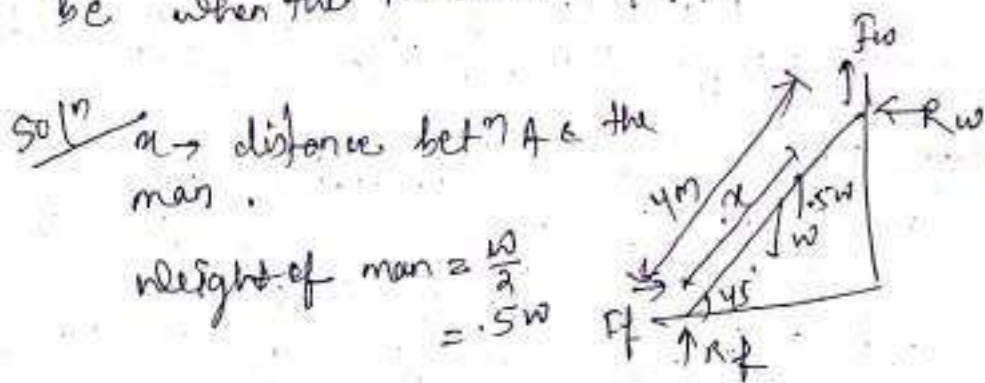 be when the
Sol^n x → distance bet^n A & the
man.
Weight of man = W/2
= .5W
Fw
Rw
4m
x
.5W
W
45°
Ff
Rf